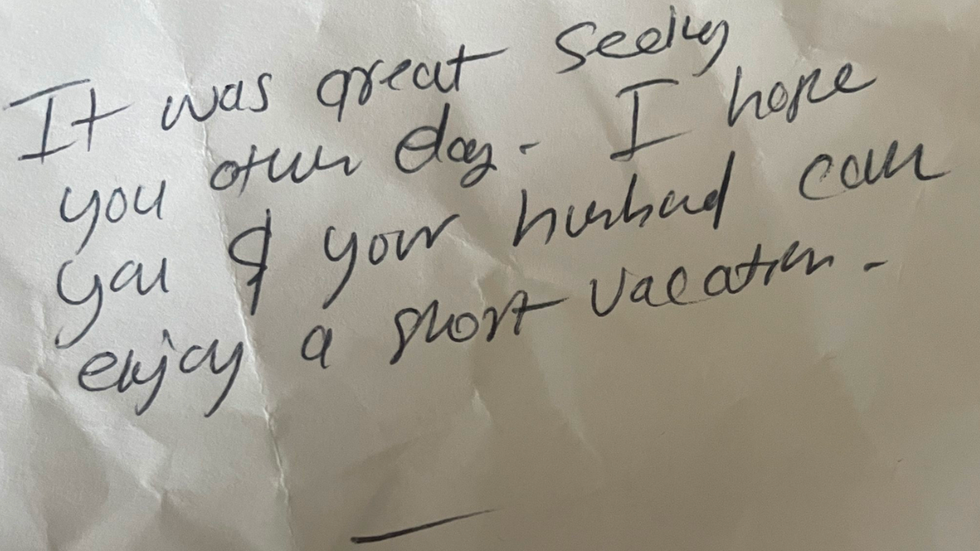 It was great seeing
you other day. I hope
you & your husband can
enjoy a short vacation.